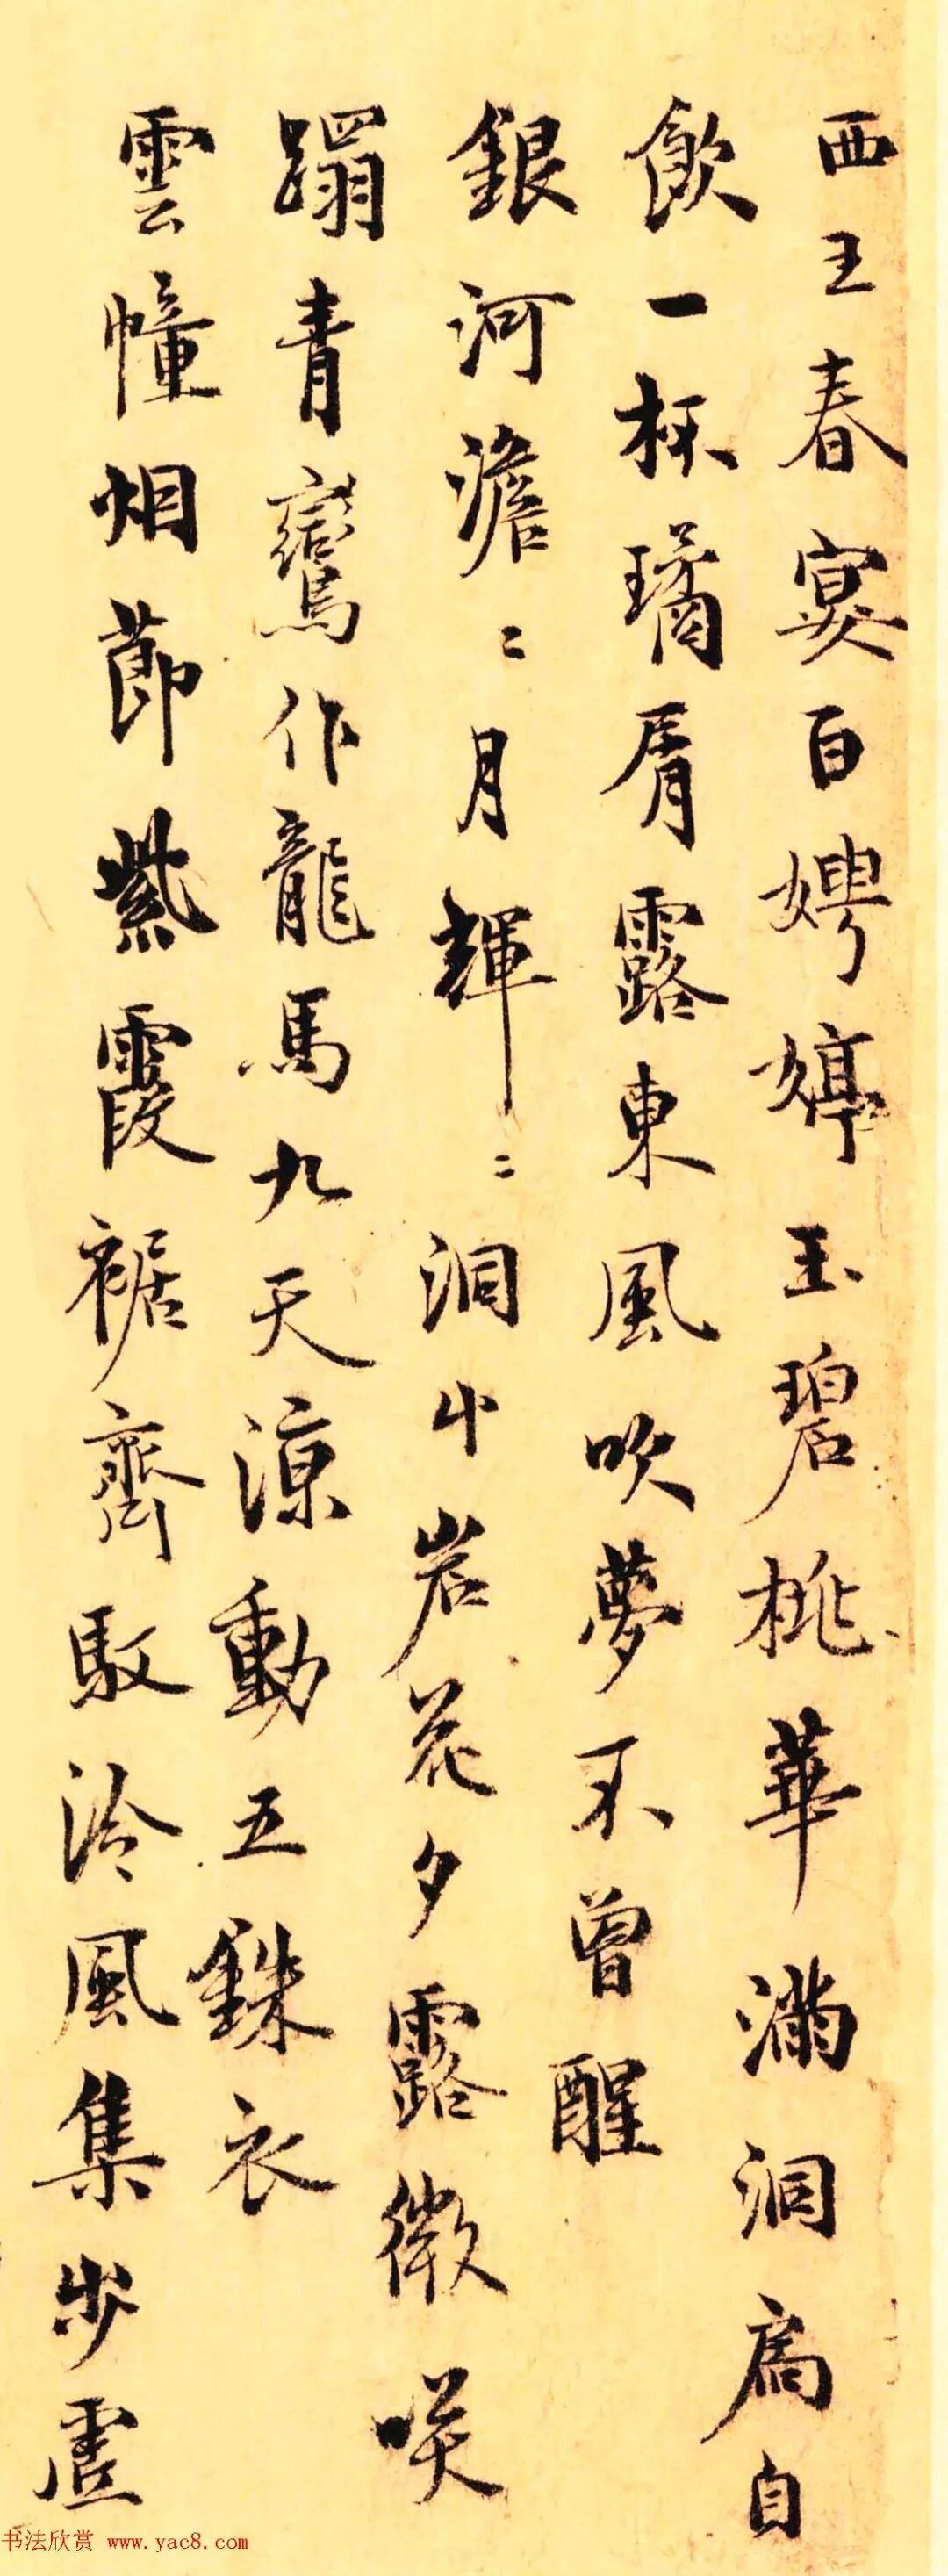 西王春宴百娉婷玉碧桃華滿洞扃自
飲一杯璚屑露東風吹夢不曾醒
銀河澹〻月輝〻洞中岩花夕露微咲
躡青鸞作龍馬九天涼動五銖衣
雲幢烟節紫霞裾齊馭泠風集步虛
书法欣赏 www.yac8.com